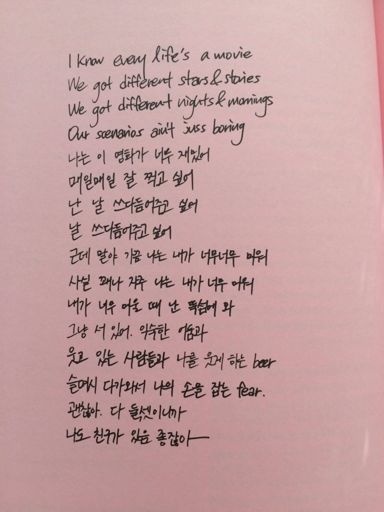 I know every life's a movie
We got different stars & stories
We got different nights & mornings
Our scenarios ain't juss boring
나는 이 영화가 너무 재밌어
매일매일 잘 찍고 싶어
난 날 쓰다듬어주고 싶어
날 쓰다듬어주고 싶어
근데 말야 가끔 나는 내가 너무너무 미워
사실 꽤나 자주 나는 내가 너무 미워
내가 너무 미울 때 난 뚝섬에 와
그냥 서 있어. 익숙한 어둠과
웃고 있는 사람들과 나를 웃게 하는 beer
슬며시 다가와서 나의 손을 잡는 fear.
괜찮아. 다 둘셋이니까
나도 친구가 있음 좋잖아